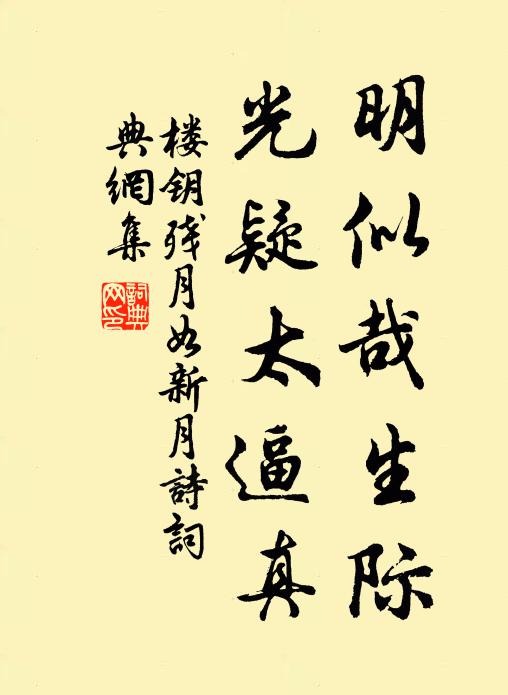 明似哉生际
光疑太逼真
楼钥残月如新月詩詞
典網集
詞典
网印